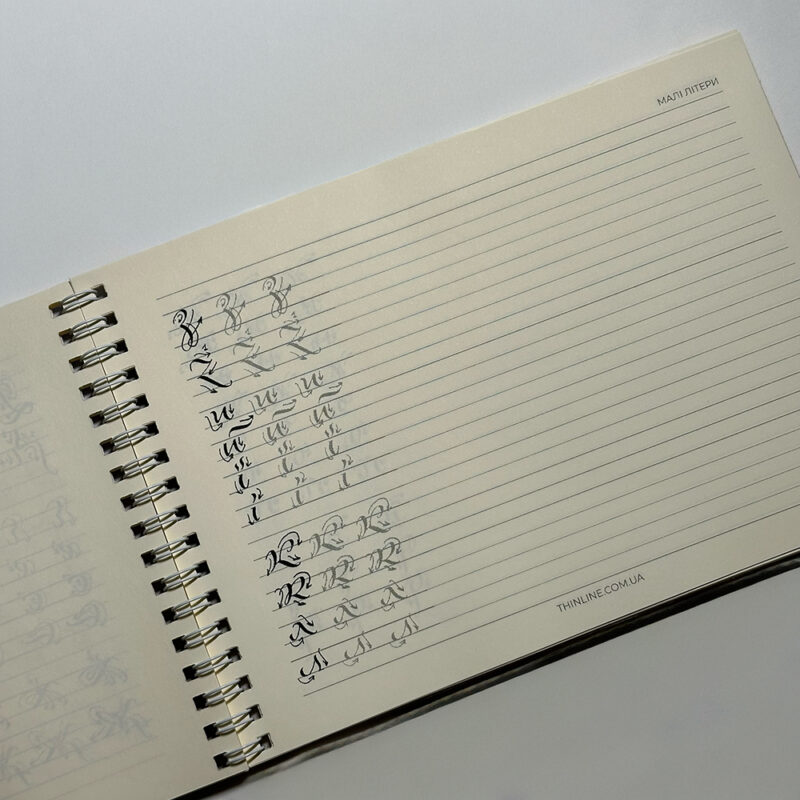 МАЛІ ЛІТЕРИ
и и и
й й й
ї ї ї
і і і
к к к
к к к
л л л
л л л
THINLINE.COM.UA